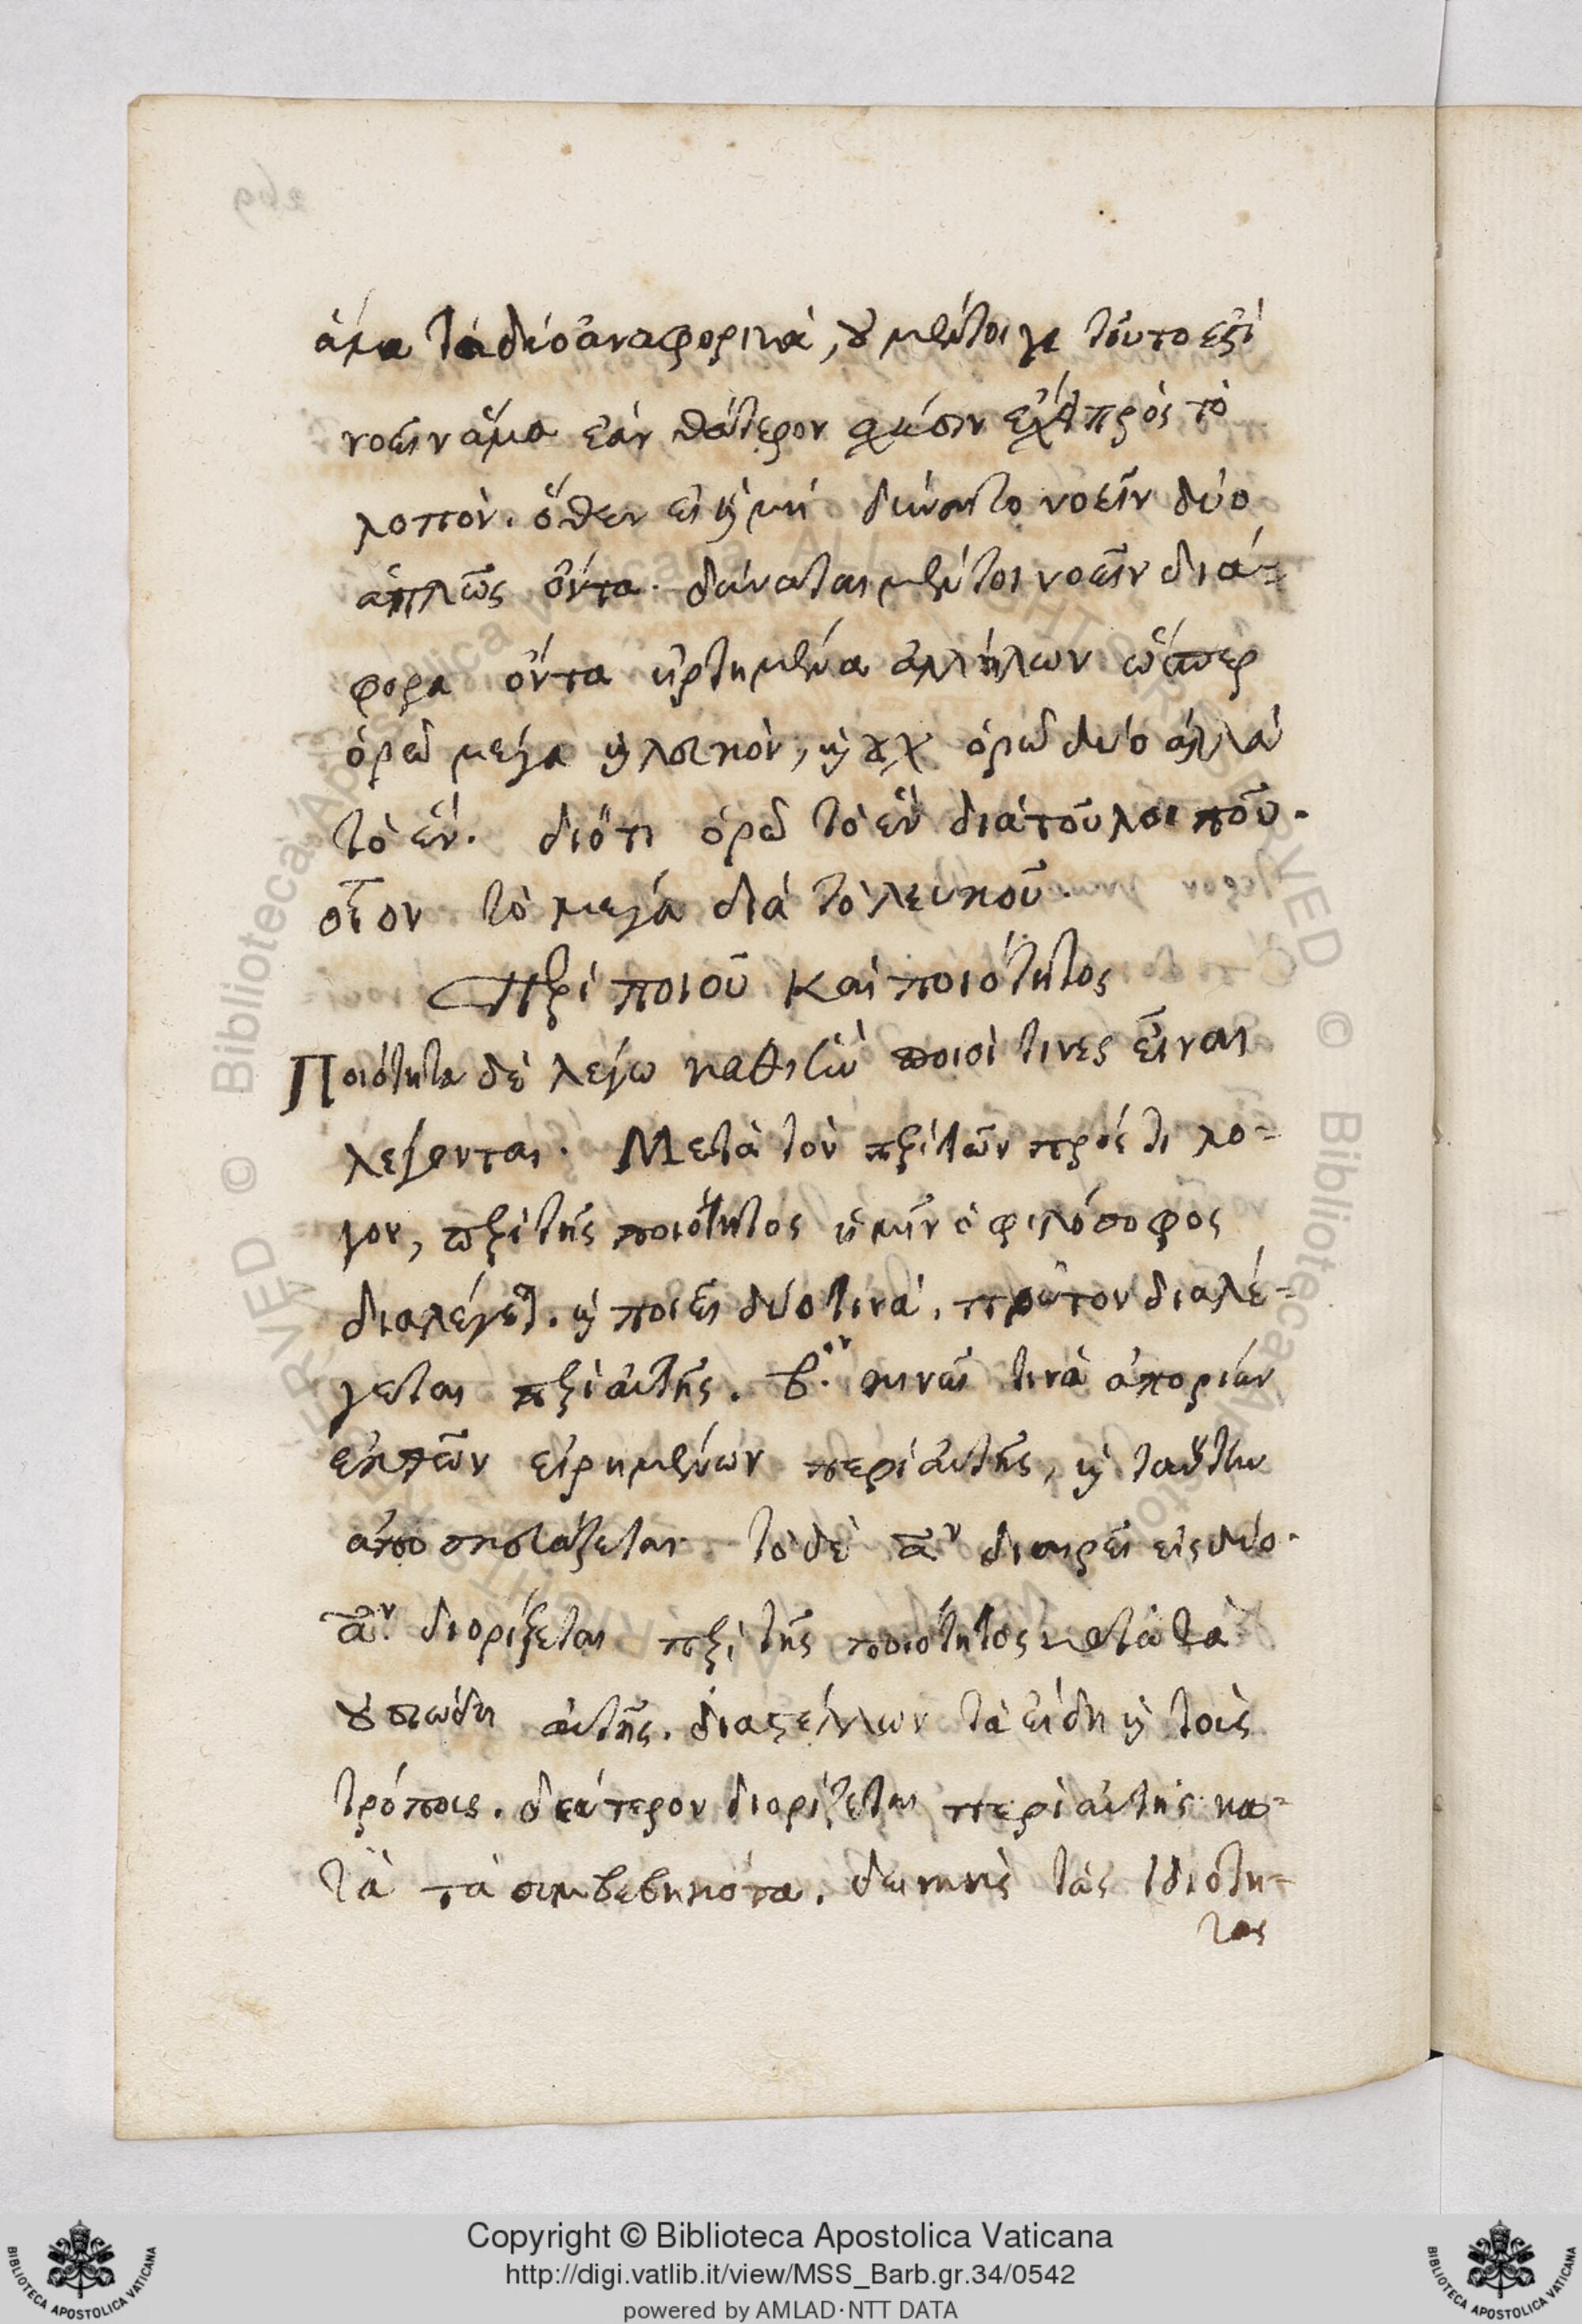 ἅμα τὰ δύο ἀναφορικὰ, οὐ μέντοι γε τοῦτο ἐστὶ
νοεῖν ἅμα ἐὰν θάτερον σχέσιν ἔχῃ πρὸς τὸ
λοιπόν. ὅθεν εἰ καὶ μὴ δύναιτο νοεῖν δύο
ἁπλῶς ὄντα. δύναται μέντοι νοεῖν διά-
φορα ὄντα ἠρτημένα ἀλλήλων ὥσπερ
ὁρῶ μέγα καὶ λευκὸν, καὶ οὐχ ὁρῶ δύο ἀλλὰ
τὸ ἕν. διότι ὁρῶ τὸ ἓν διὰ τοῦ λοιποῦ.
οἷον τὸ μέγα διὰ τὸ λευκοῦ.
Περὶ ποιοῦ καὶ ποιότητος
Ποιότητα δὲ λέγω καθ' ἣν ποιοί τινες εἶναι
λέγονται. Μετὰ τὸν περὶ τῶν πρός τι λό-
γον, περὶ τῆς ποιότητος ἡμῖν ὁ φιλόσοφος
διαλέγεται. καὶ ποιεῖ δύο τινά. πρῶτον διαλέ-
γεται περὶ αὐτῆς. β.ον κινεῖ τινὰ ἀπορίαν
ἐκ τῶν εἰρημένων περὶ αὐτῆς, καὶ ταύτην
ἀποσκεδάζεται. τὸ δὲ αον διαιρεῖ εἰς δύο.
αον. διορίζεται περὶ τῆς ποιότητος κατὰ τὰ
οὐσιώδη αὐτῆς. διαστέλλων τὰ εἴδη καὶ τοὺς
τρόπους. δεύτερον διορίζεται περὶ αὐτῆς κα-
τὰ τὰ συμβεβηκότα. δεικνὺς τὰς ἰδιότη-
τας
Copyright © Biblioteca Apostolica Vaticana
http://digi.vatlib.it/view/MSS_Barb.gr.34/0542
powered by AMLAD·NTT DATA